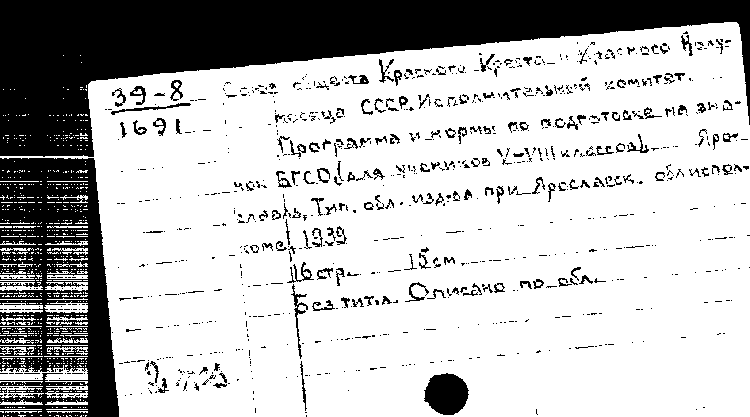 39-8
1691
Союз обществ Красного Креста и Красного Полу-
месяца СССР. Исполнительный комитет.
Программа и нормы по подготовке на зна-
чок БГСО (для учеников V-VIII классов). Яро-
славль, Тип. обл. изд-ва при Ярославск. облиспол-
коме, 1939
16 стр. 15 см.
Без тит.л. Описано по обл.